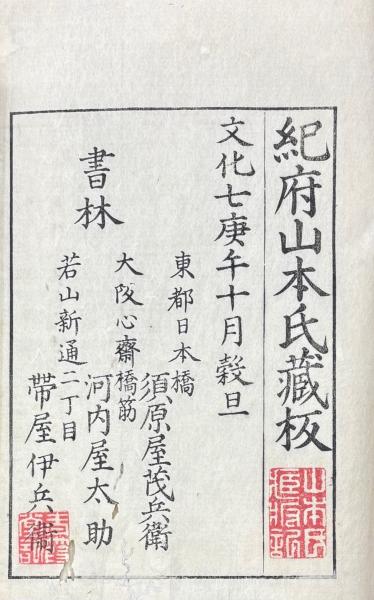 紀府山本氏蔵板
文化七庚午十月穀旦
書林
東都日本橋
須原屋茂兵衛
大阪心齋橋筋
河内屋太助
若山新通二丁目
帯屋伊兵衛